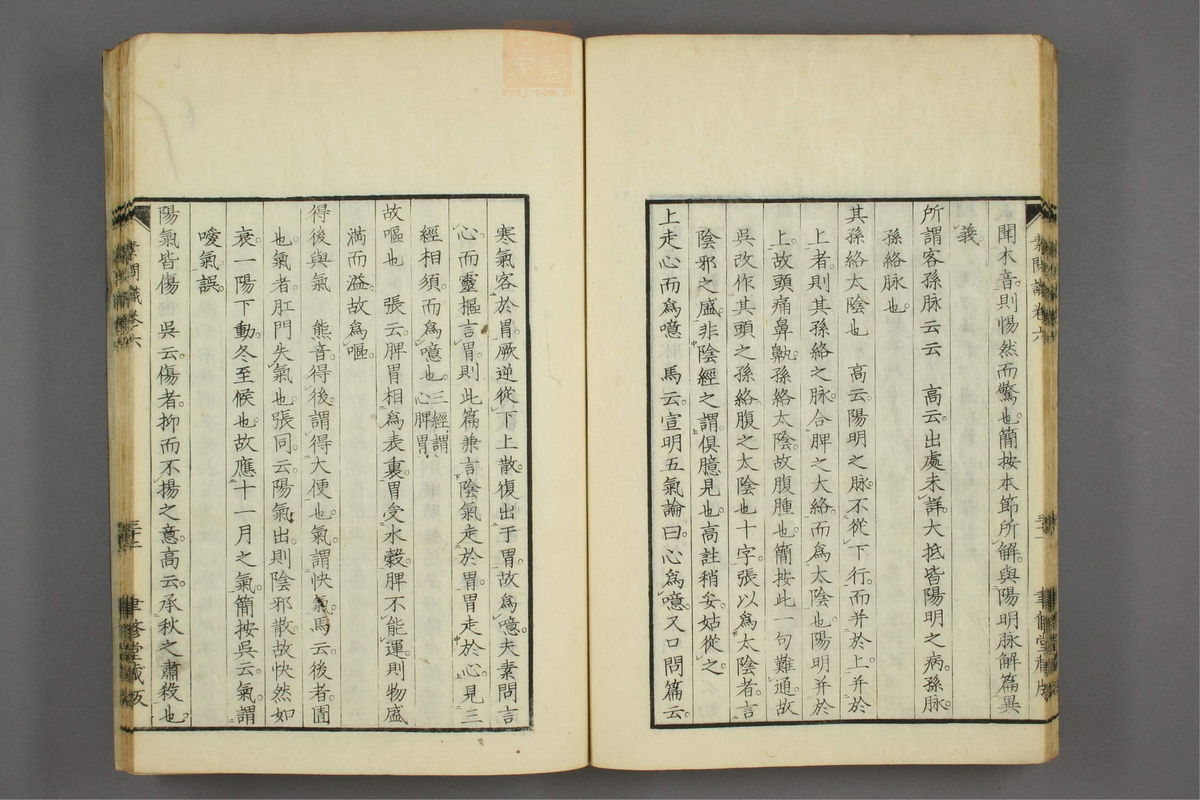 聞木音則惕然而驚也簡按本節所解與陽明脉解篇異
義
所謂客孫脉云云　高云出處未詳大抵皆陽明之病孫脉
孫絡脉也
其孫絡太陰也　高云陽明之脉不從下行而并於上并於
上者則其孫絡之脉合脾之大絡而爲太陰也陽明并於
上故頭痛鼻鼽孫絡太陰故腹腫也簡按此一句難通故
吳改作其頭之孫絡腹之太陰也十字張以爲太陰者言
陰邪之盛非陰經之謂俱臆見也高註稍妥姑從之
上走心而爲噫　馬云宣明五氣論曰心爲噫又口問篇云
寒氣客於胃厥逆從下上散復出于胃故爲噫夫素問言
心而靈樞言胃則此篇兼言陰氣走於胃胃走於心見三
經相須而爲噫也三經謂心脾胃
故嘔也　張云脾胃相爲表裏胃受水穀脾不能運則物盛
滿而溢故爲嘔
得後與氣　熊音得後謂得大便也氣謂快氣馬云後者圊
也氣者肛門失氣也張同云陽氣出則陰邪散故快然如
衰一陽下動冬至候也故應十一月之氣簡按吳云氣謂
噯氣誤
陽氣皆傷　吳云傷者抑而不揚之意高云承秋之肅殺也
素問識卷六
聿修堂藏版
zysj.com.cn